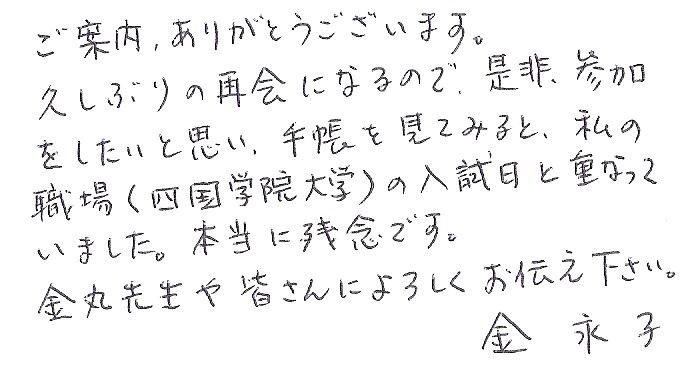 ご案内、ありがとうございます。
久しぶりの再会になるので、是非、参加
をしたいと思い、手帳を見てみると、私の
職場（四国学院大学）の入試日と重なって
いました。本当に残念です。
金丸先生や皆さんによろしくお伝え下さい。
金 永子